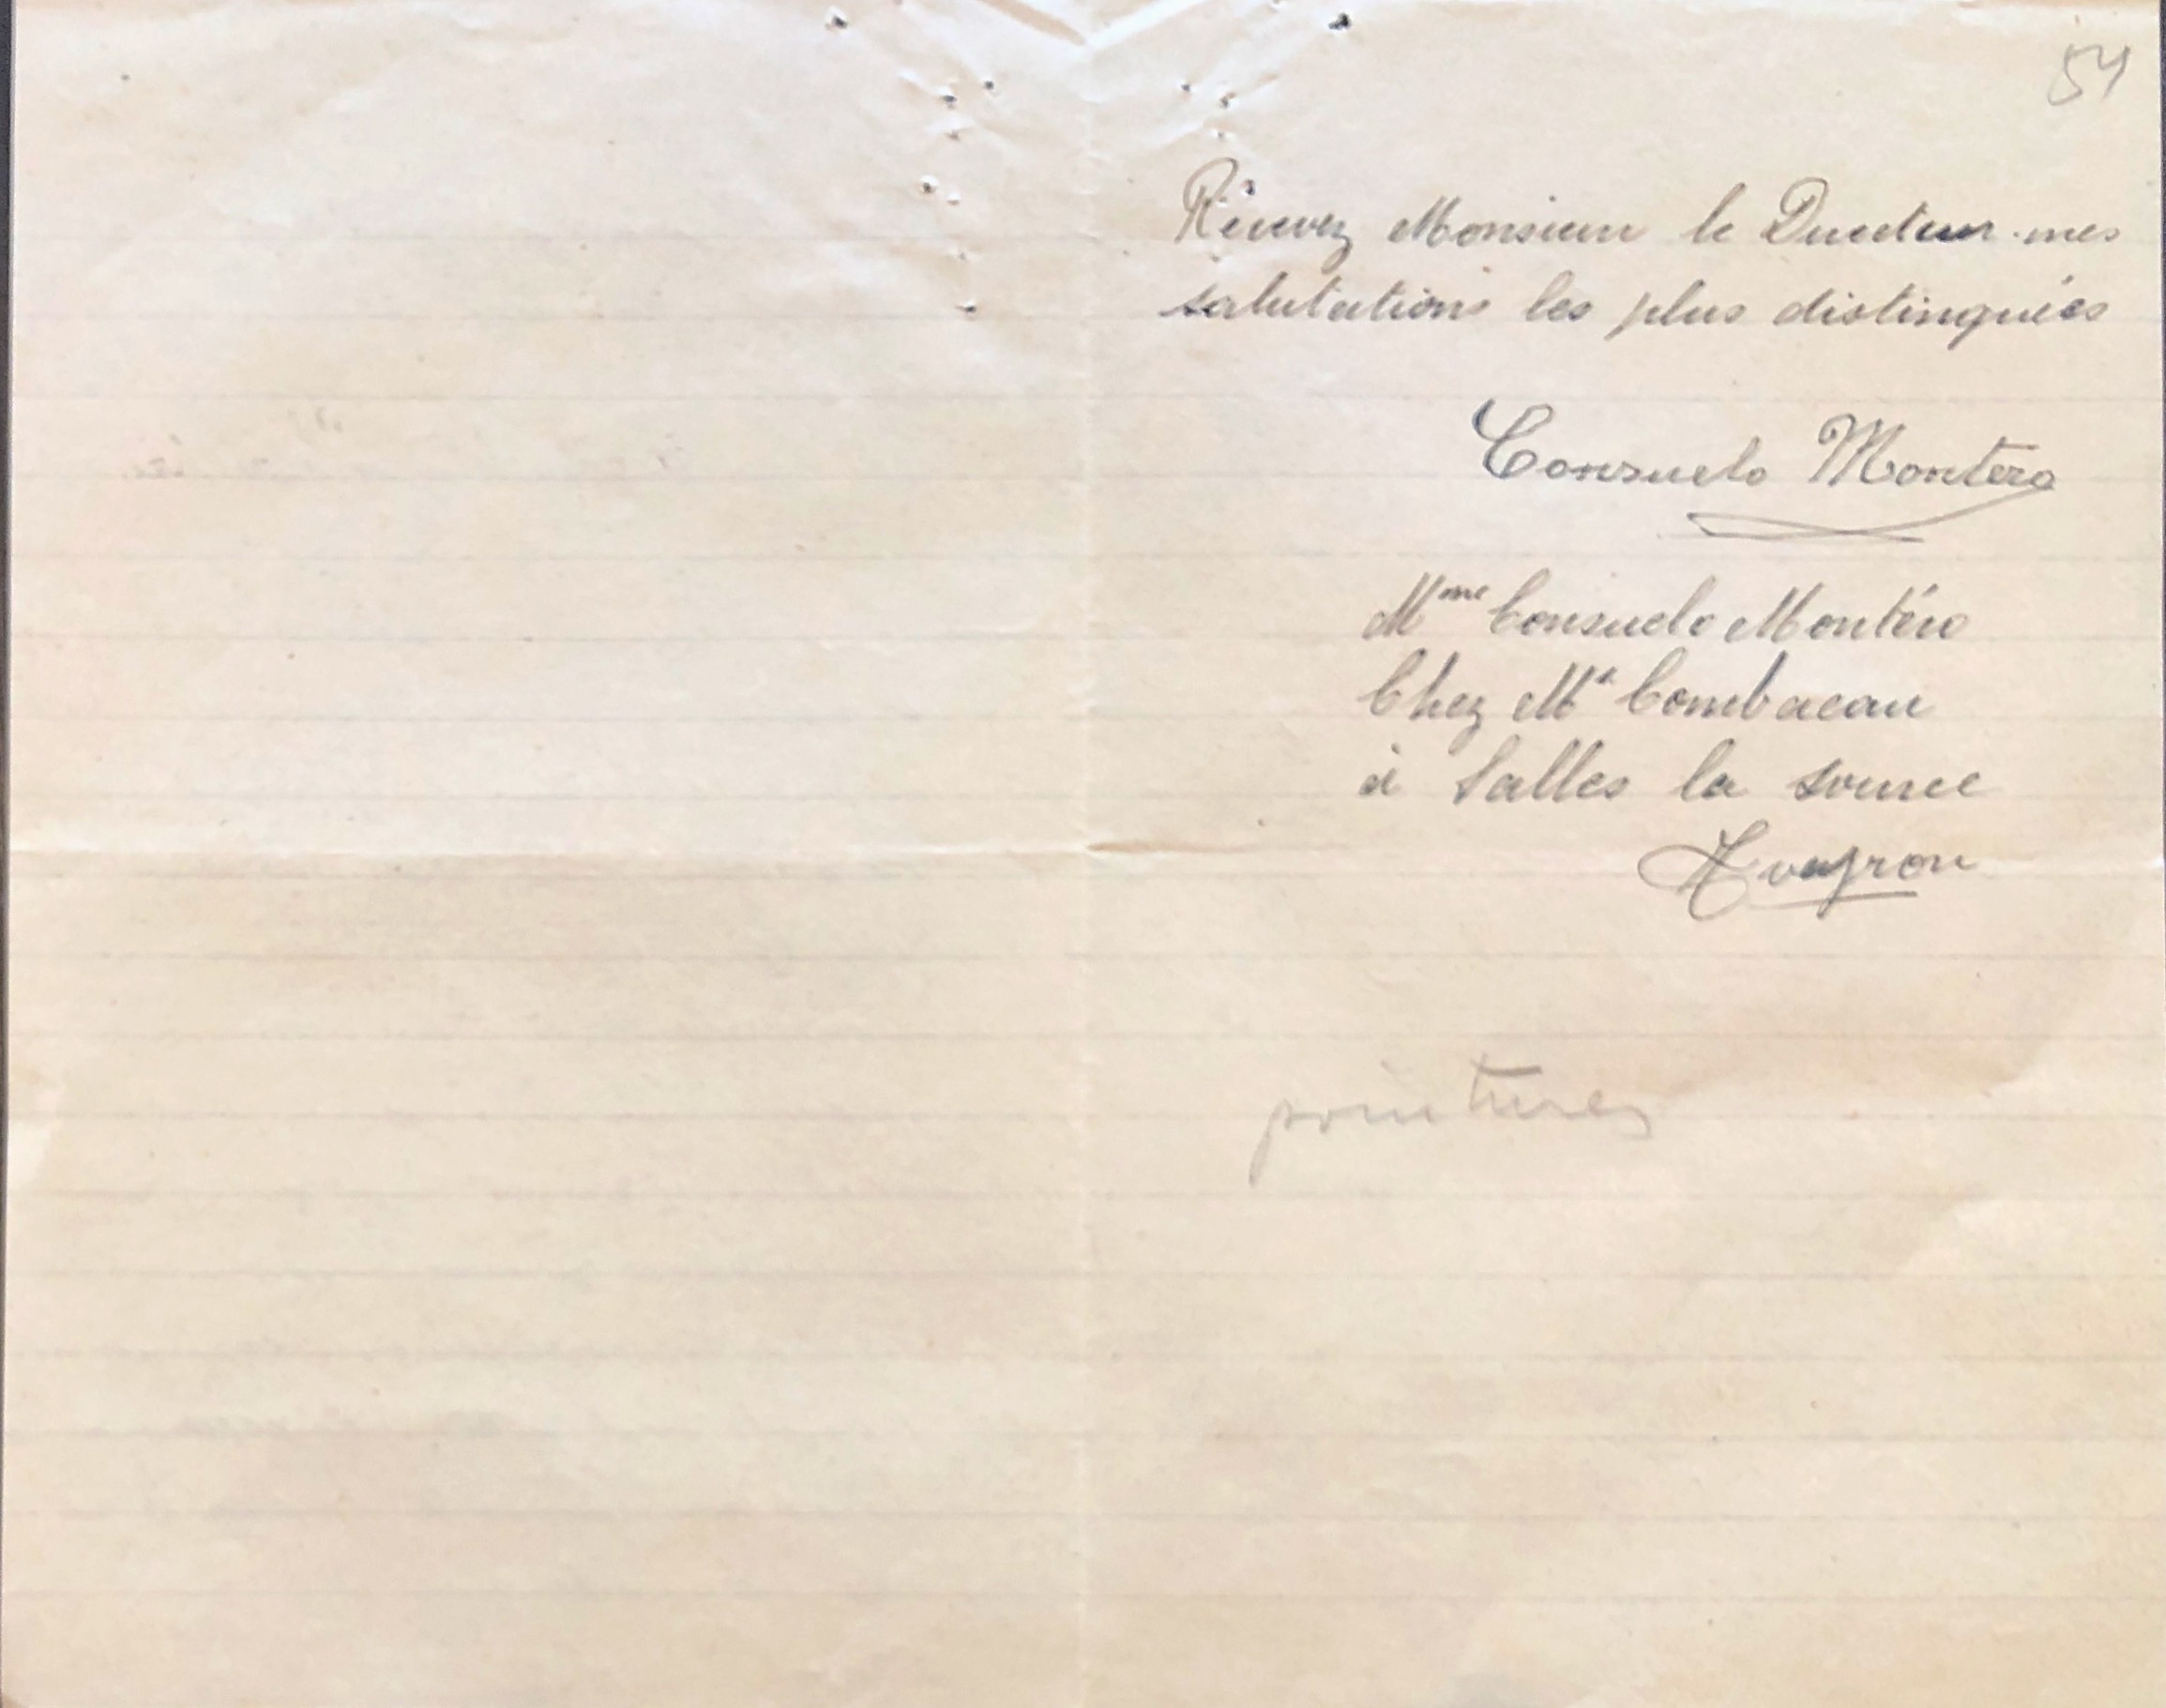 54
Recevez Monsieur le Directeur mes
salutations les plus distinguées
Consuelo Montero
Mme Consuelo Montéro
Chez Mr Combacau
à Salles la source
Aveyron
pointures